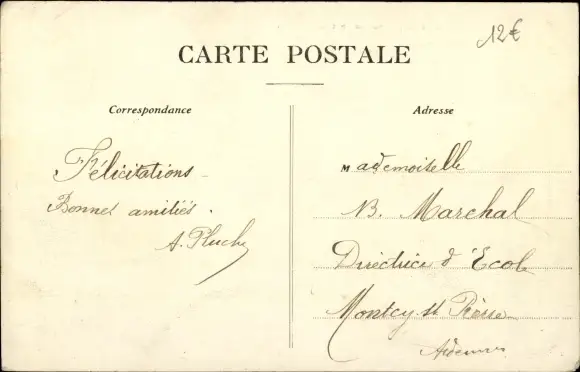 12€
CARTE POSTALE
Correspondance
Félicitations
Bonnes amitiés.
A. Pluche
Adresse
Mademoiselle
B. Marchal
Directrice d'Ecole
Montcy-St Pierre
Ardennes